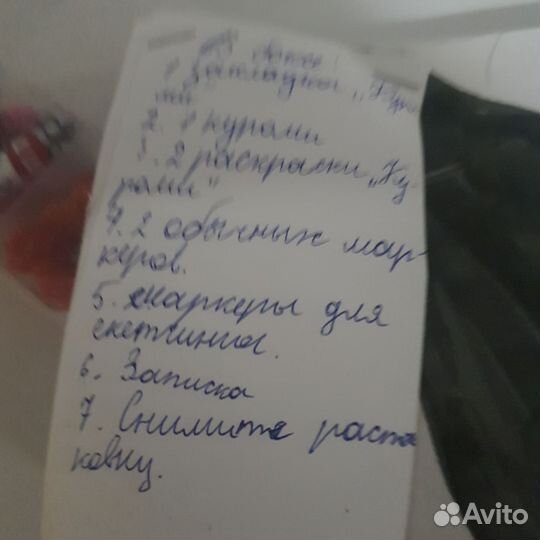 боксе:
1 Закладки „Куро
ми"
2. 1 куроми
3. 2 раскраски „Ку-
роми"
4. 2 обычных мар-
керов.
5. маркеры для
скетчинга.
6. Записка
7. Снимите распа
ковку.
Avito